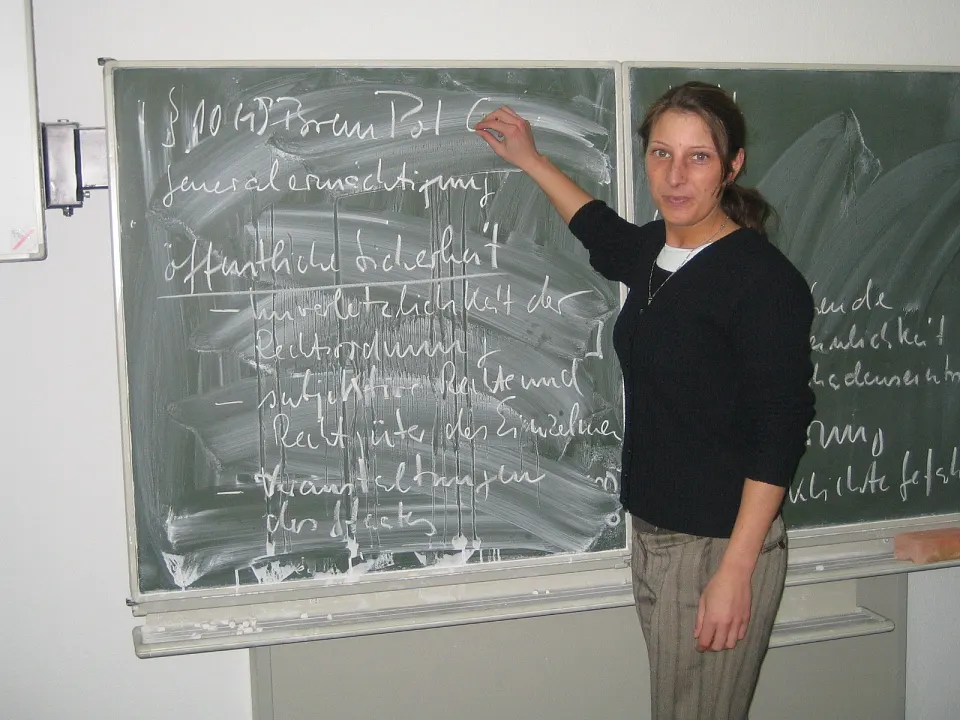 § 10 (1) Brem Pol G
Generalermächtigung
öffentliche Sicherheit
- Unverletzlichkeit der
Rechtsordnung
- subjektive Rechte und
Rechtsgüter des Einzelnen
- Veranstaltungen
des Staates
ende
inlichkeit
hadenseintr
rung
chlichte Gefah